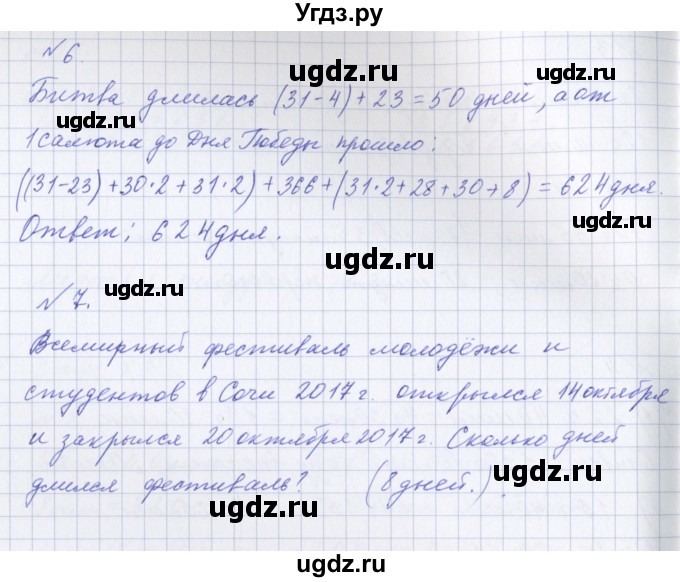 Угдз.ру
ugdz.ru
№6.
ugdz.ru
ugdz.ru
Битва длилась (31-4)+23=50 дней, а от
1 салюта до Дня Победы прошло:
ugdz.ru
((31-23)+30·2+31·2)+366+(31·2+28+30+8)=624 дня.
Ответ: 624 дня.
ugdz.ru
ugdz.ru
№7.
ugdz.ru
Всемирный фестиваль молодёжи и
студентов в Сочи 2017 г. открылся 14 октября
ugdz.ru
и закрылся 20 октября 2017 г. Сколько дней
длился фестиваль? (8 дней.).
ugdz.ru
ugdz.ru
ugdz.ru